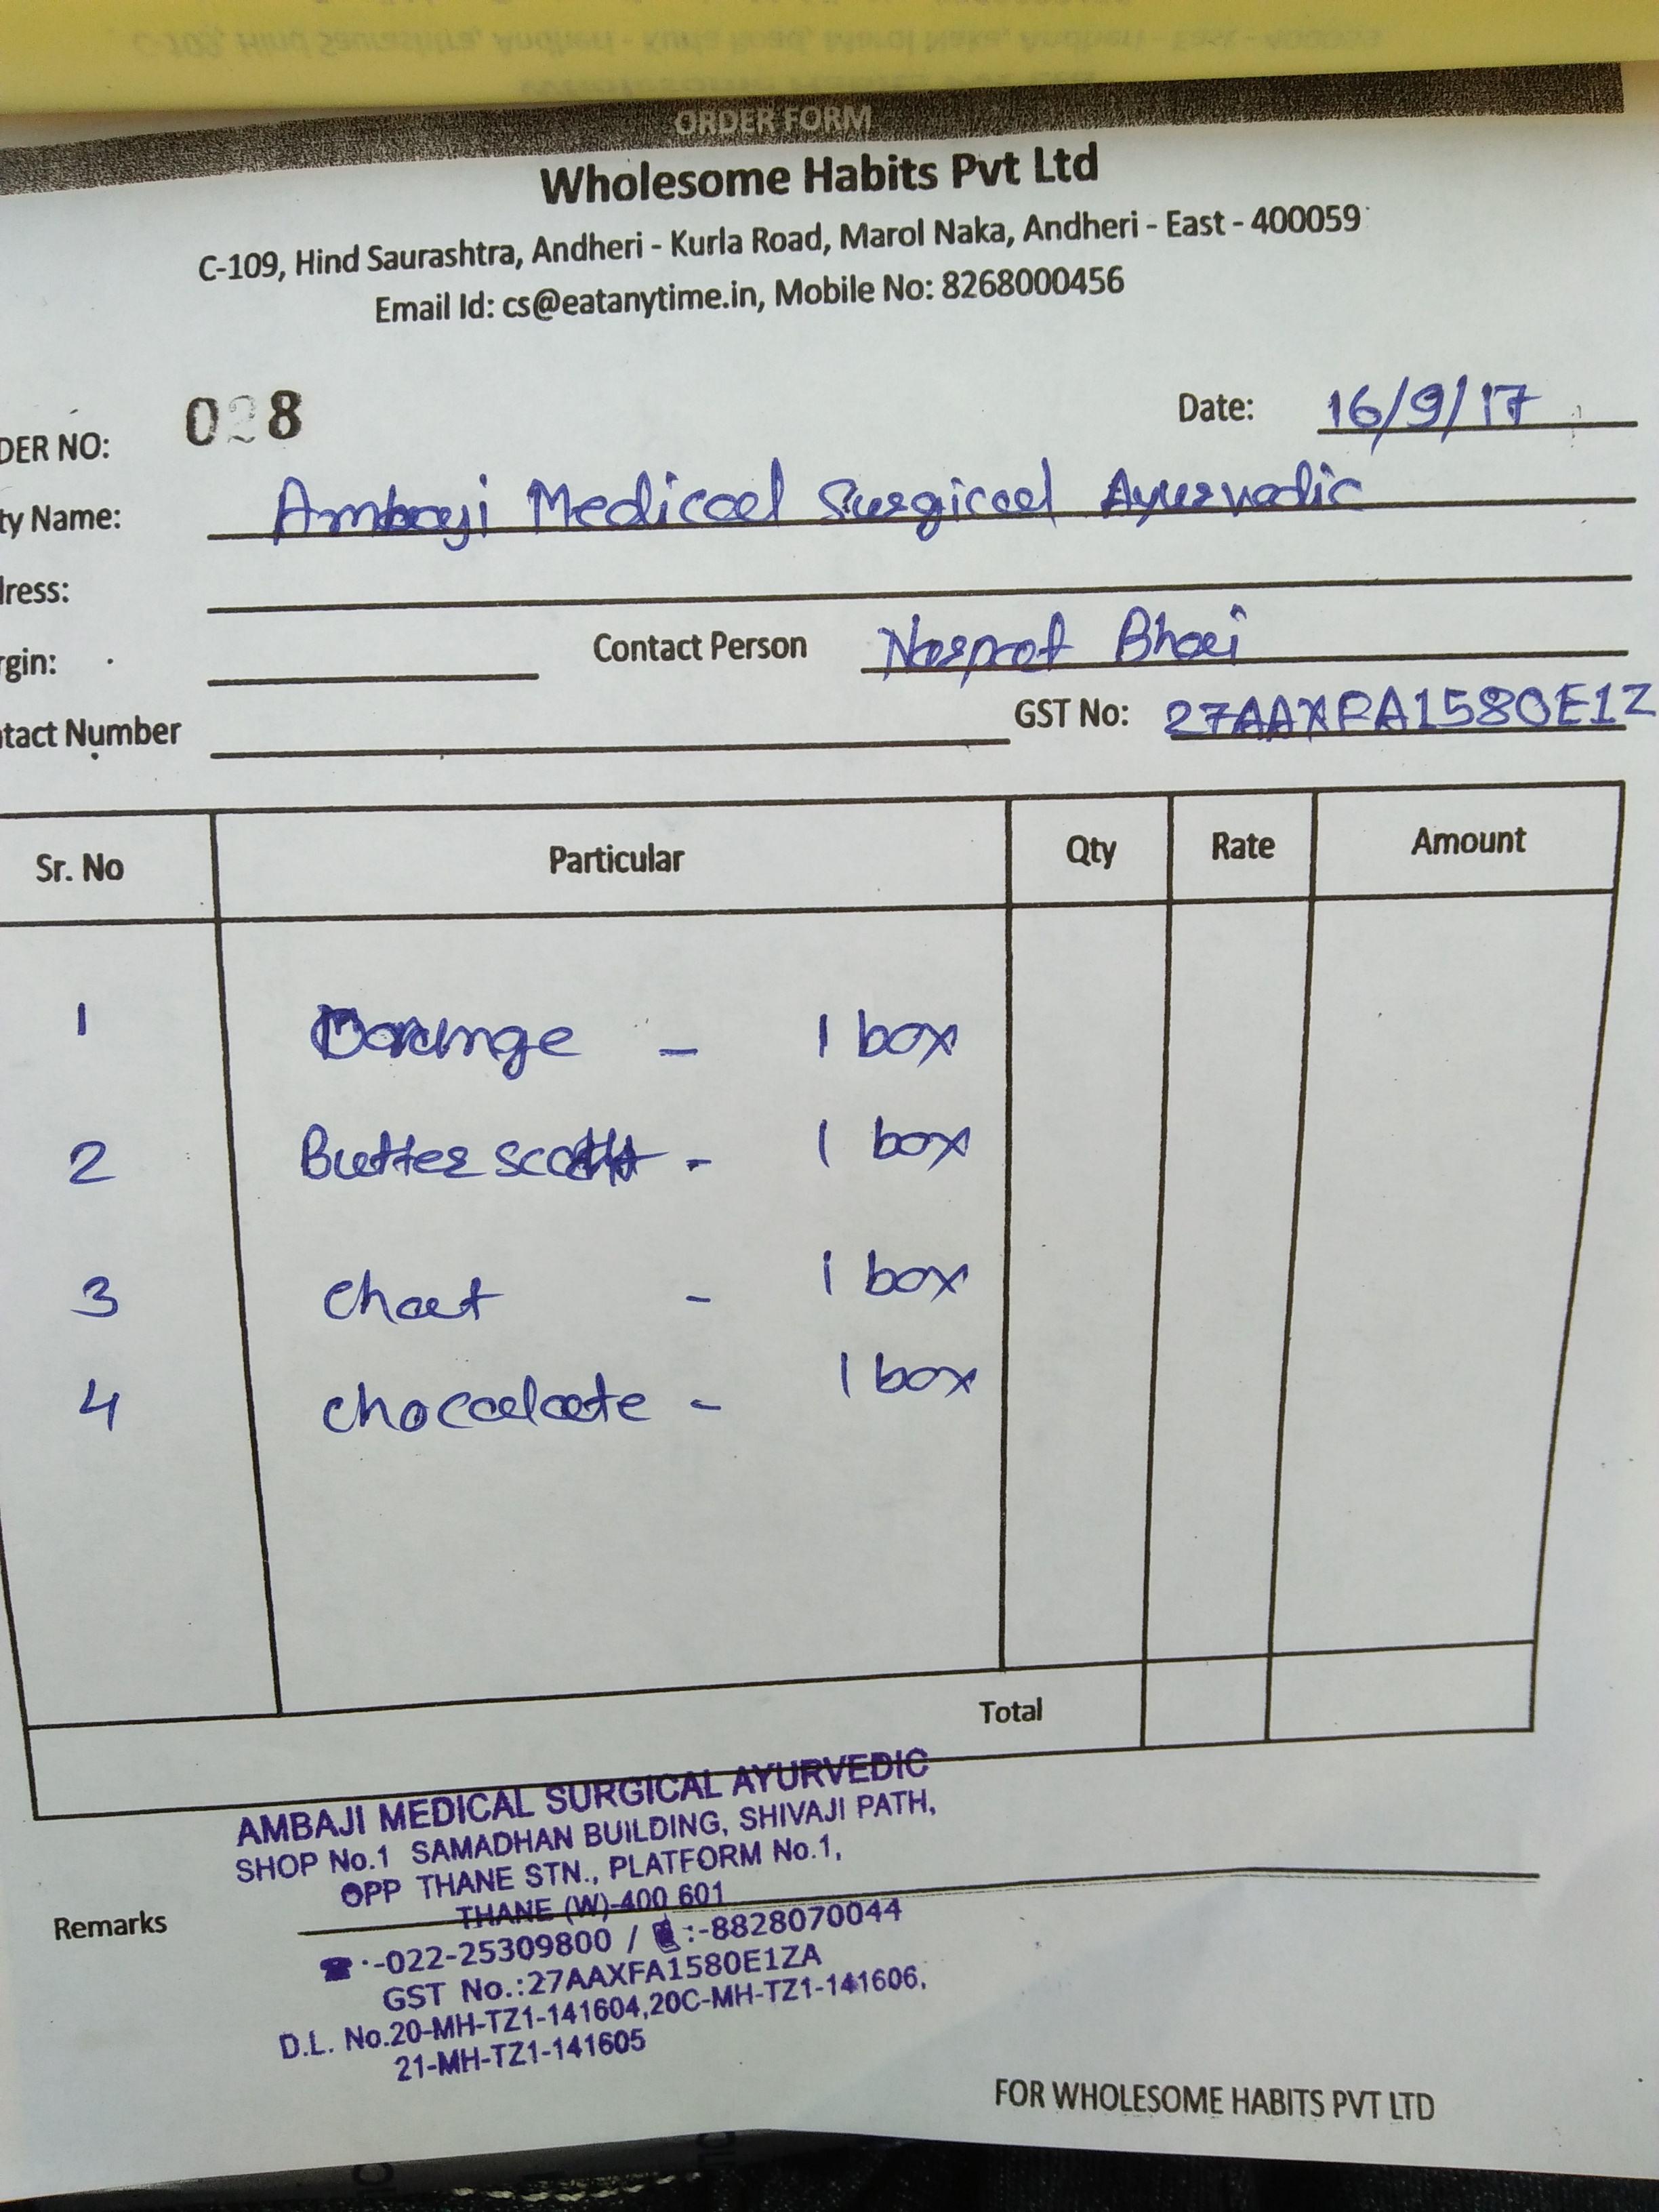 ORDER FORM
Wholesome Habits Pvt Ltd
C-109, Hind Saurashtra, Andheri - Kurla Road, Marol Naka, Andheri - East - 400059
Email Id: cs@eatanytime.in, Mobile No: 8268000456
DER NO: 028 Date: 16/9/17
ty Name: Ambaji Medical Surgical Ayurvedic
ress:
rgin: Contact Person Bhai
tact Number GST No: 27AAXFA1580E1Z
Sr. No Particular Qty Rate Amount
1 Orange - 1 box
2 Butter scott - 1 box
3 Chat - 1 box
4 choccalate - 1 box
Total
AMBAJI MEDICAL SURGICAL AYURVEDIC
SHOP No.1 SAMADHAN BUILDING, SHIVAJI PATH,
OPP THANE STN., PLATFORM No.1,
THANE (W)-400 601
Remarks
:-022-25309800 / :-8828070044
GST No.:27AAXFA1580E1ZA
D.L. No.20-MH-TZ1-141604,20C-MH-TZ1-141606,
21-MH-TZ1-141605
FOR WHOLESOME HABITS PVT LTD